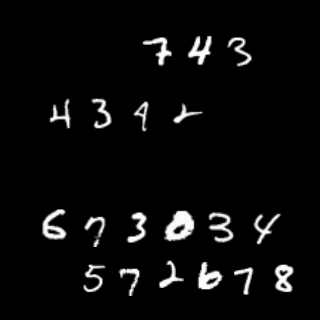 7 4 3
4 3 9 2
6 7 3 0 3 4
5 7 2 6 7 8